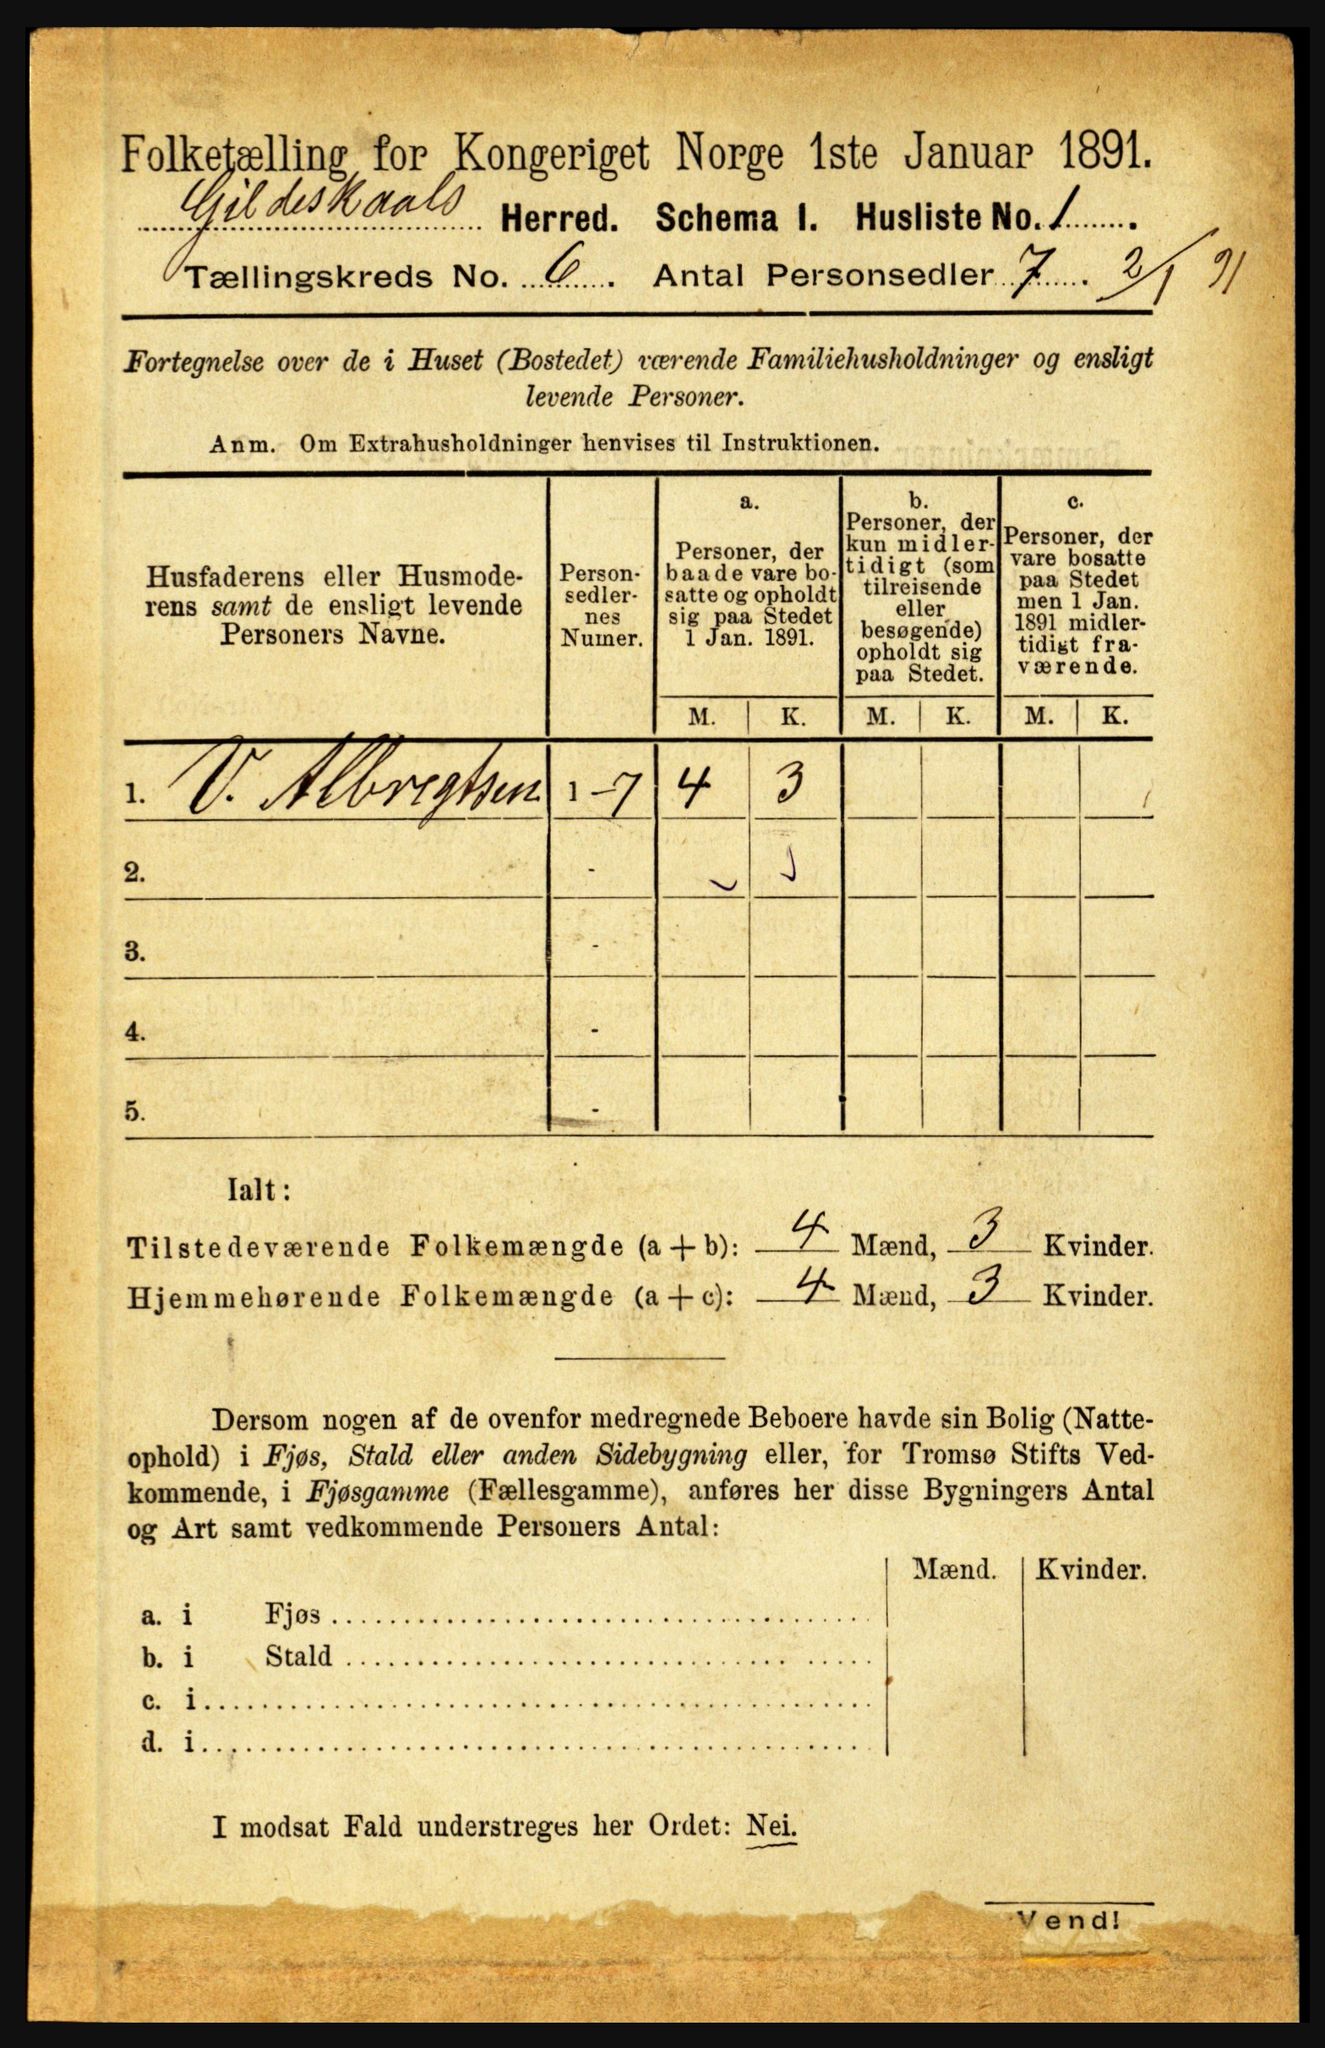 Folketælling for Kongeriget Norge 1ste Januar 1891.
Gildeskaals Herred. Schema I. Husliste No. 1.
Tællingskreds No. 6. Antal Personsedler 7. 2/1 91
Fortegnelse over de i Huset (Bostedet) værende Familiehusholdninger og ensligt
levende Personer.
Anm. Om Extrahusholdninger henvises til Instruktionen.
Husfaderens eller Husmode-
rens samt de ensligt levende
Personers Navne.
Person-
sedler-
nes
Numer.
a.
Personer, der
baade vare bo-
satte og opholdt
sig paa Stedet
1 Jan. 1891.
b.
Personer, der
kun midler-
tidigt (som
tilreisende
eller
besøgende)
opholdt sig
paa Stedet.
c.
Personer, der
vare bosatte
paa Stedet
men 1 Jan.
1891 midler-
tidigt fra-
værende.
M. K. M. K. M. K.
1. V. Albregtsen 1-7 4 3
2. -
3. -
4. -
5. -
Ialt:
Tilstedeværende Folkemængde (a+b): 4 Mænd, 3 Kvinder.
Hjemmehørende Folkemængde (a+c): 4 Mænd, 3 Kvinder.
Dersom nogen af de ovenfor medregnede Beboere havde sin Bolig (Natte-
ophold) i Fjøs, Stald eller anden Sidebygning eller, for Tromsø Stifts Ved-
kommende, i Fjøsgamme (Fællesgamme), anføres her disse Bygningers Antal
og Art samt vedkommende Personers Antal:
Mænd. Kvinder.
a. i Fjøs
b. i Stald
c. i
d. i
I modsat Fald understreges her Ordet: Nei.
Vend!